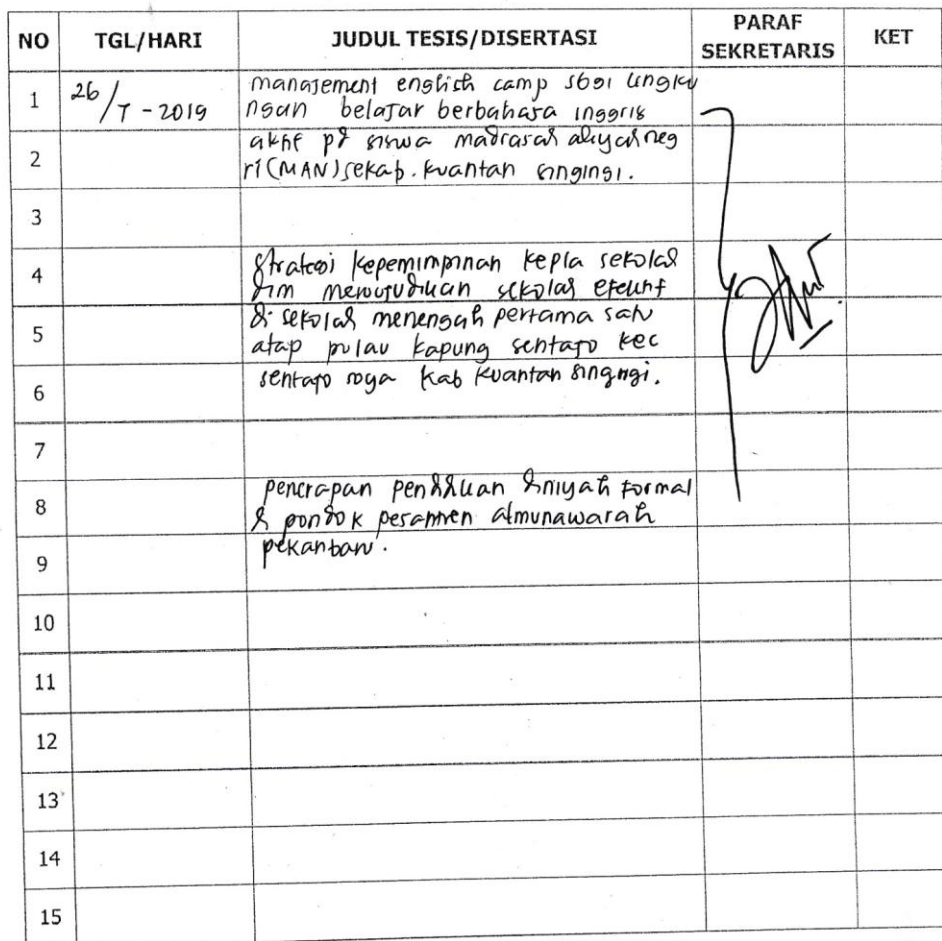 NO TGL/HARI JUDUL TESIS/DISERTASI PARAF SEKRETARIS KET
1 26/7-2019 manajement english camp sbgi lingku
ngan belajar berbahasa inggris
2 aktif pd siswa madrasah aliyah neg
ri (MAN) sekab. kuantan singingi.
3
4 strategi kepemimpinan kepla sekolah
dlm mewujudkan sekolah efektif
5 di sekolah menengah pertama satu
atap pulau kapung sentajo kec
6 sentajo raya kab kuantan singingi.
7
8 penerapan pendidikan diniyah formal
di pondok pesantren almunawarah
9 pekanbaru.
10
11
12
13
14
15